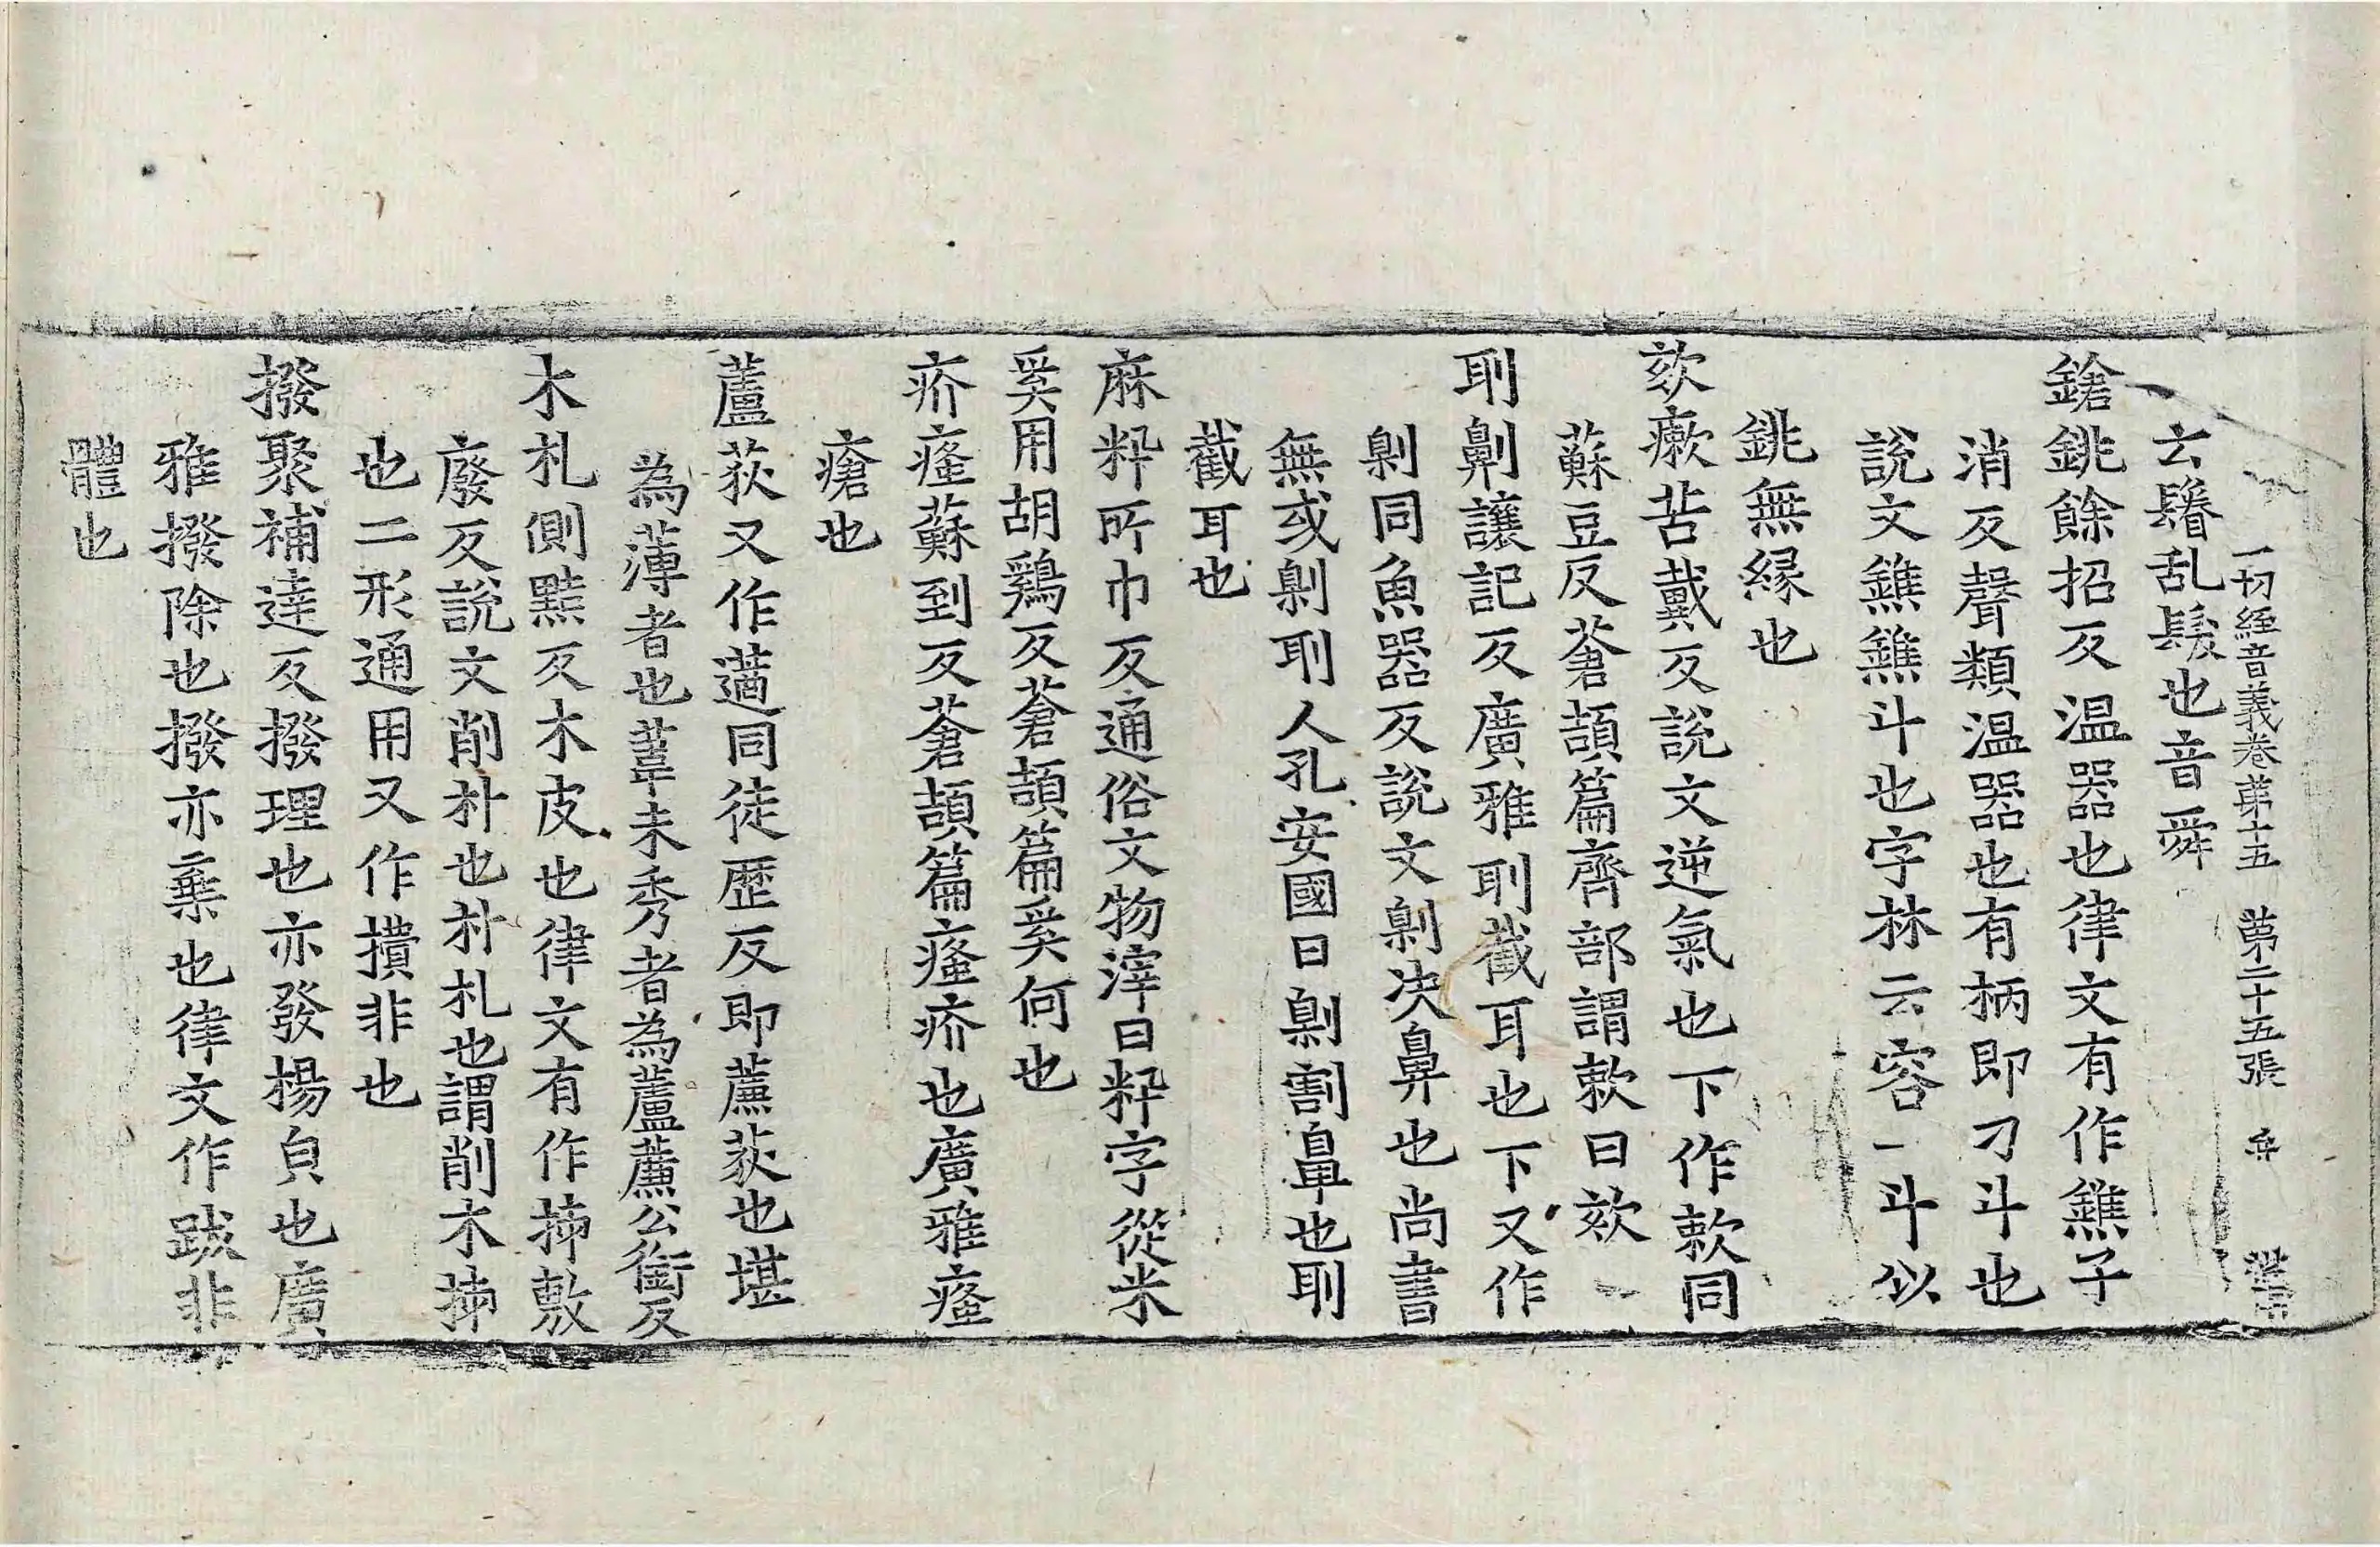 一切經音義卷苐十五 苐二十五張 弁
云鬊乱髮也音舜
鎗銚餘招反温器也律文有作鐎子
消反聲類温器也有柄即刁斗也
說文鐎鐎斗也字林云容一斗似
銚無縁也
欬瘶苦戴反說文逆氣也下作欶同
蘇豆反蒼頡篇齊部謂欶曰欬
刵劓讓記反廣雅刵截耳也下又作
劓同魚器反說文劓决鼻也尚書
無或劓刵人孔安國曰劓割鼻也刵
截耳也
麻籸所巾反通俗文物滓曰籸字從米
奚用胡鷄反蒼頡篇奚何也
疥瘙蘇到反蒼頡篇瘙疥也廣雅瘙
瘡也
蘆荻又作藡同徒歷反即薕荻也堪
為薄者也葦未秀者為蘆薕公銜反
木札側黠反木皮也律文有作㧊敷
廢反說文削朴也朴札也謂削木㧊
也二形通用又作㩌非也
撥聚補達反撥理也亦發揚負也廣
雅撥除也撥亦棄也律文作跋非
體也